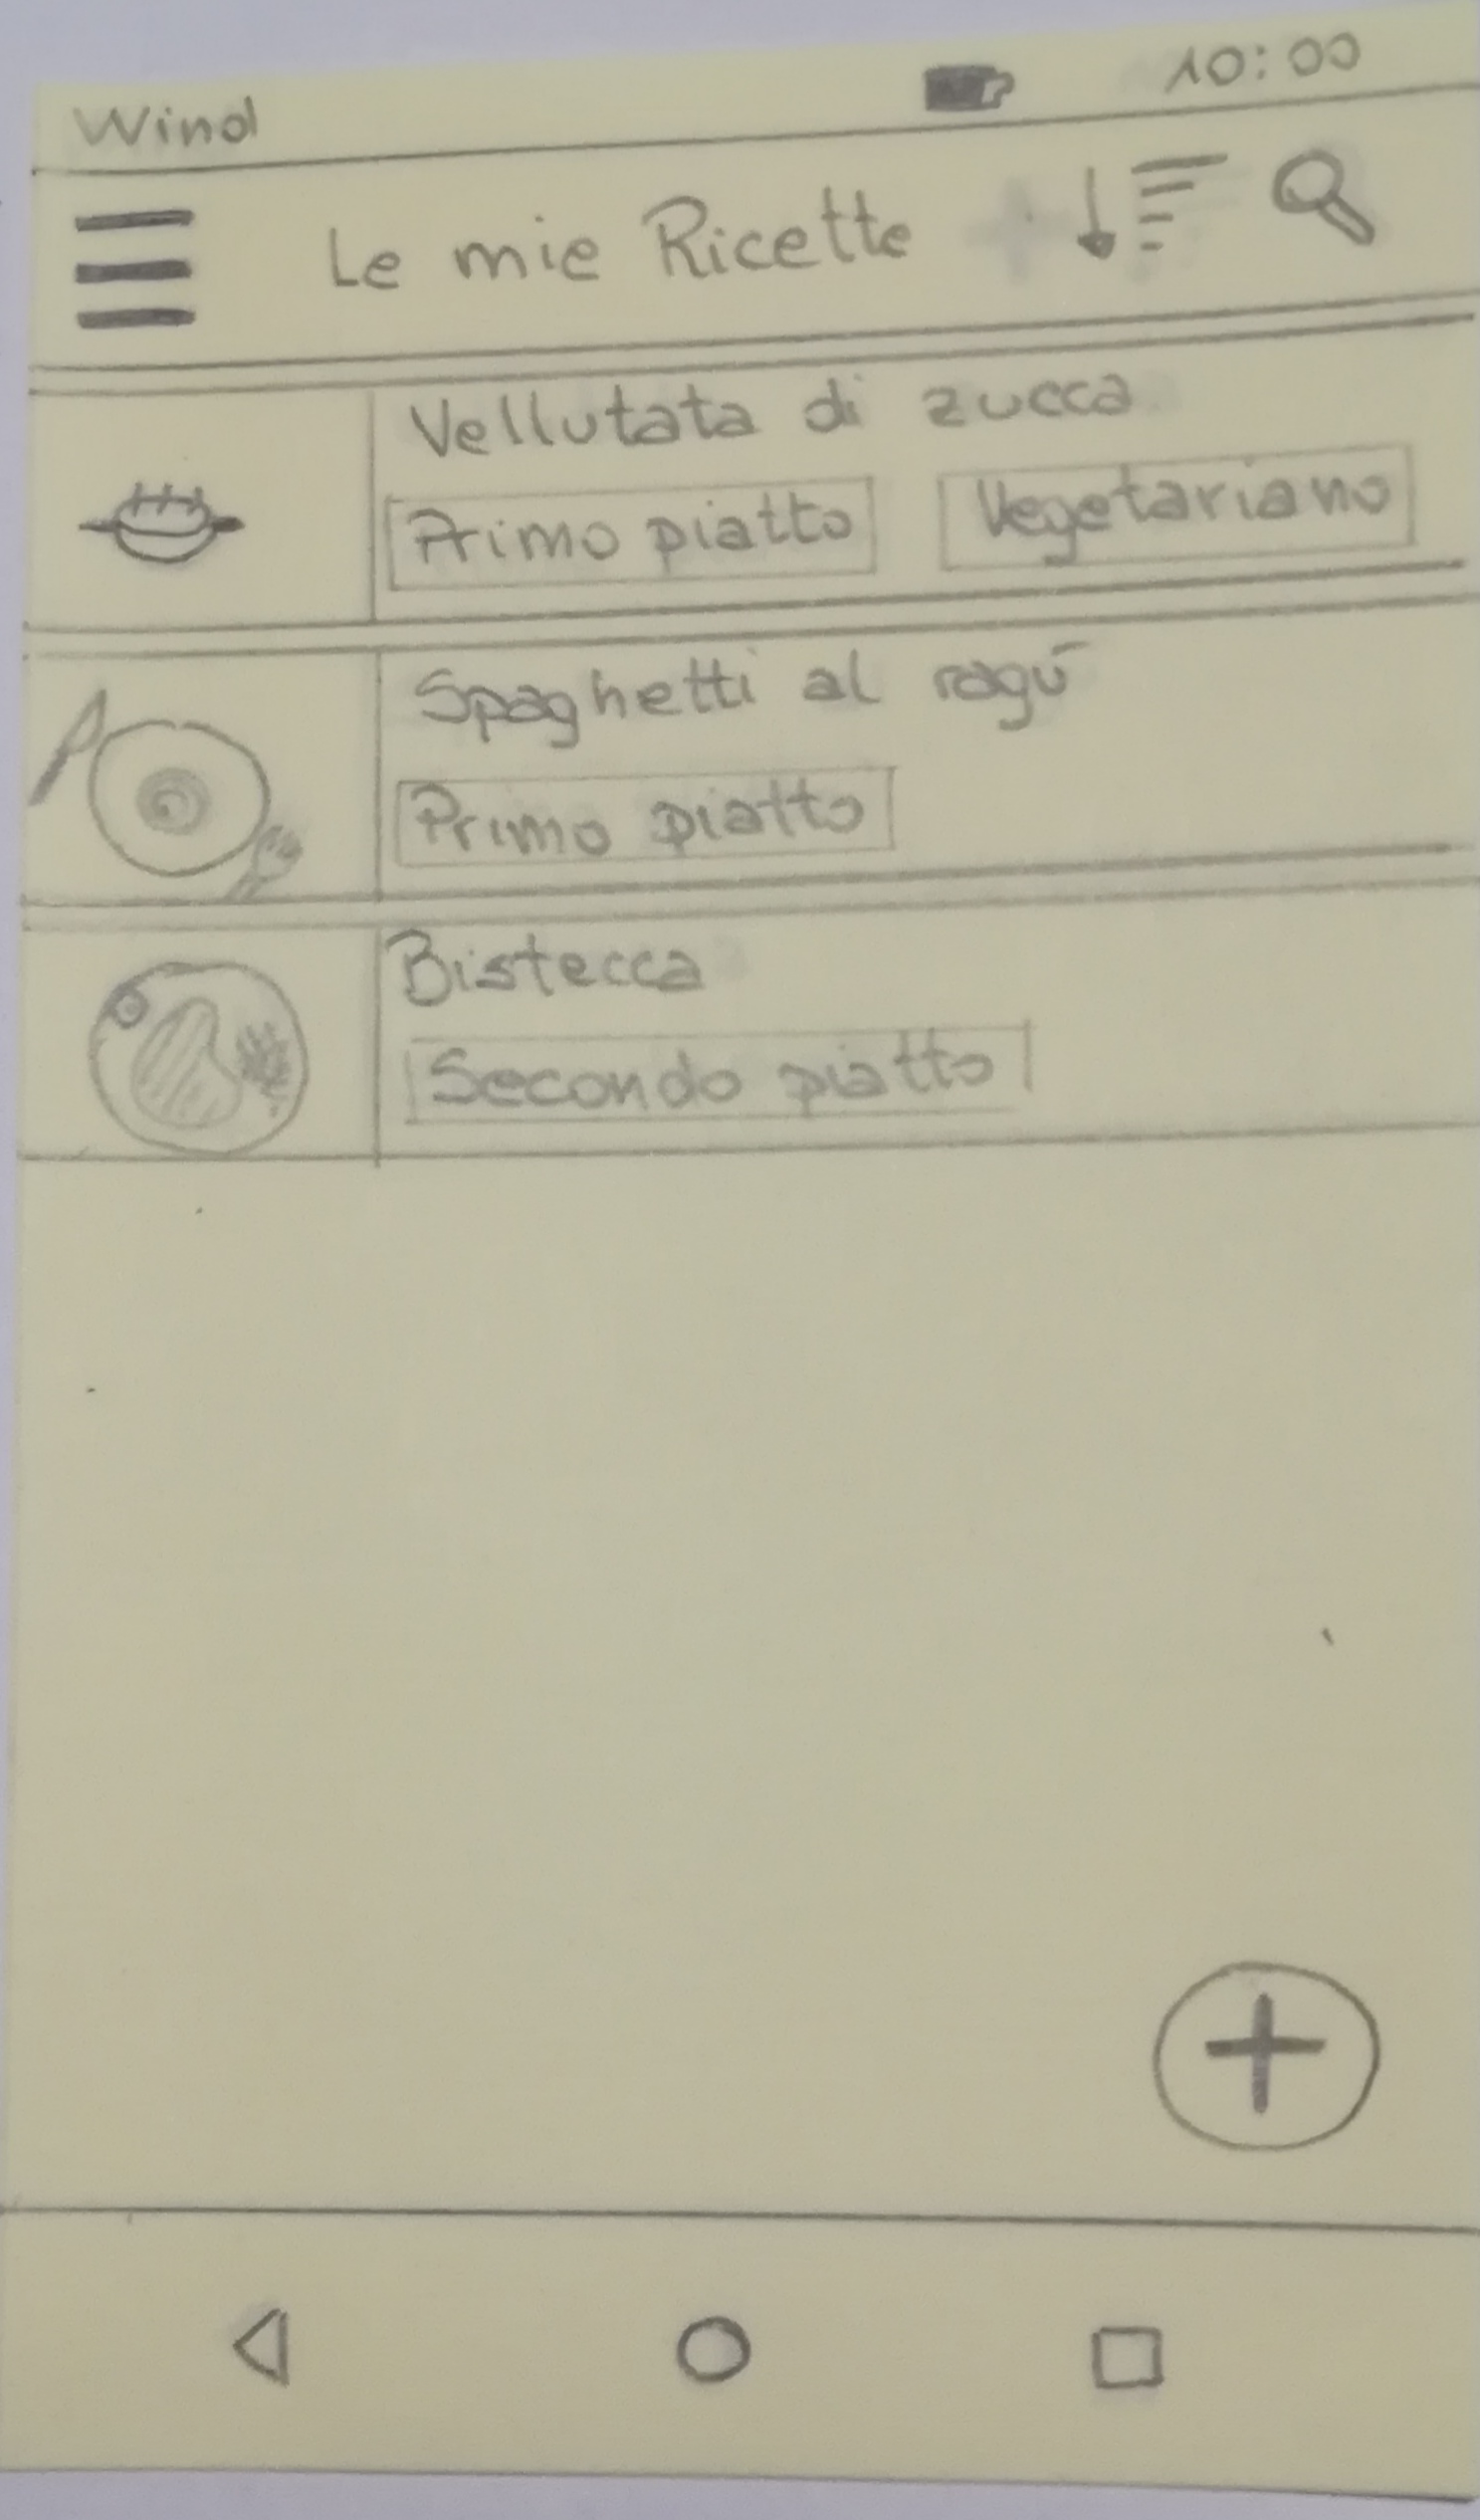 Wind 10:00
Le mie Ricette
Vellutata di zucca
Primo piatto Vegetariano
Spaghetti al ragú
Primo piatto
Bistecca
Secondo piatto